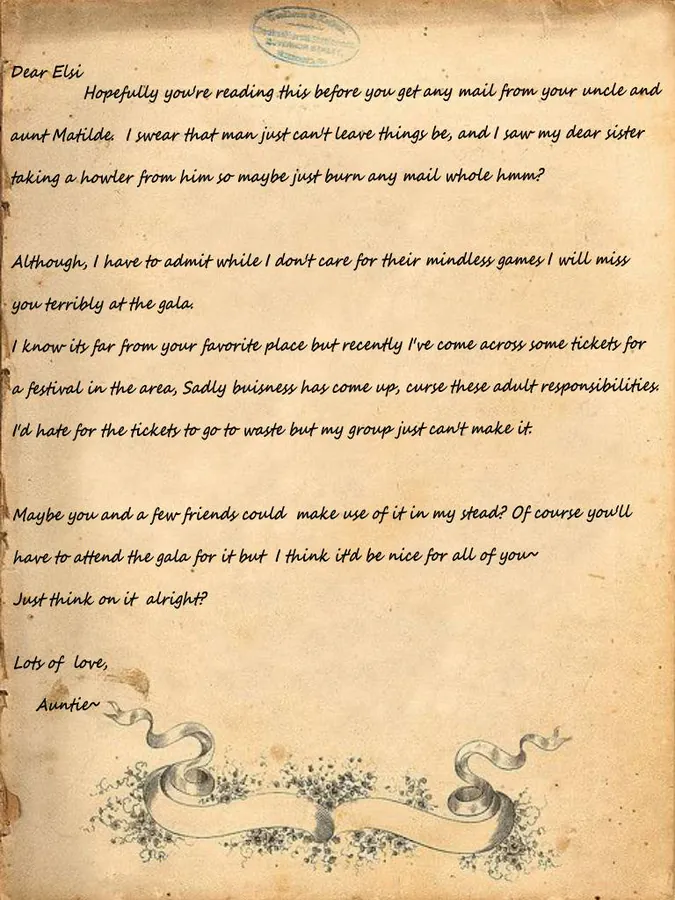 Dear Elsi
Hopefully you're reading this before you get any mail from your uncle and
aunt Matilde. I swear that man just can't leave things be, and I saw my dear sister
taking a howler from him so maybe just burn any mail whole hmm?
Although, I have to admit while I don't care for their mindless games I will miss
you terribly at the gala.
I know its far from your favorite place but recently I've come across some tickets for
a festival in the area, Sadly buisness has come up, curse these adult responsibilities.
I'd hate for the tickets to go to waste but my group just can't make it.
Maybe you and a few friends could make use of it in my stead? Of course you'll
have to attend the gala for it but I think it'd be nice for all of you~
Just think on it alright?
Lots of love,
Auntie~